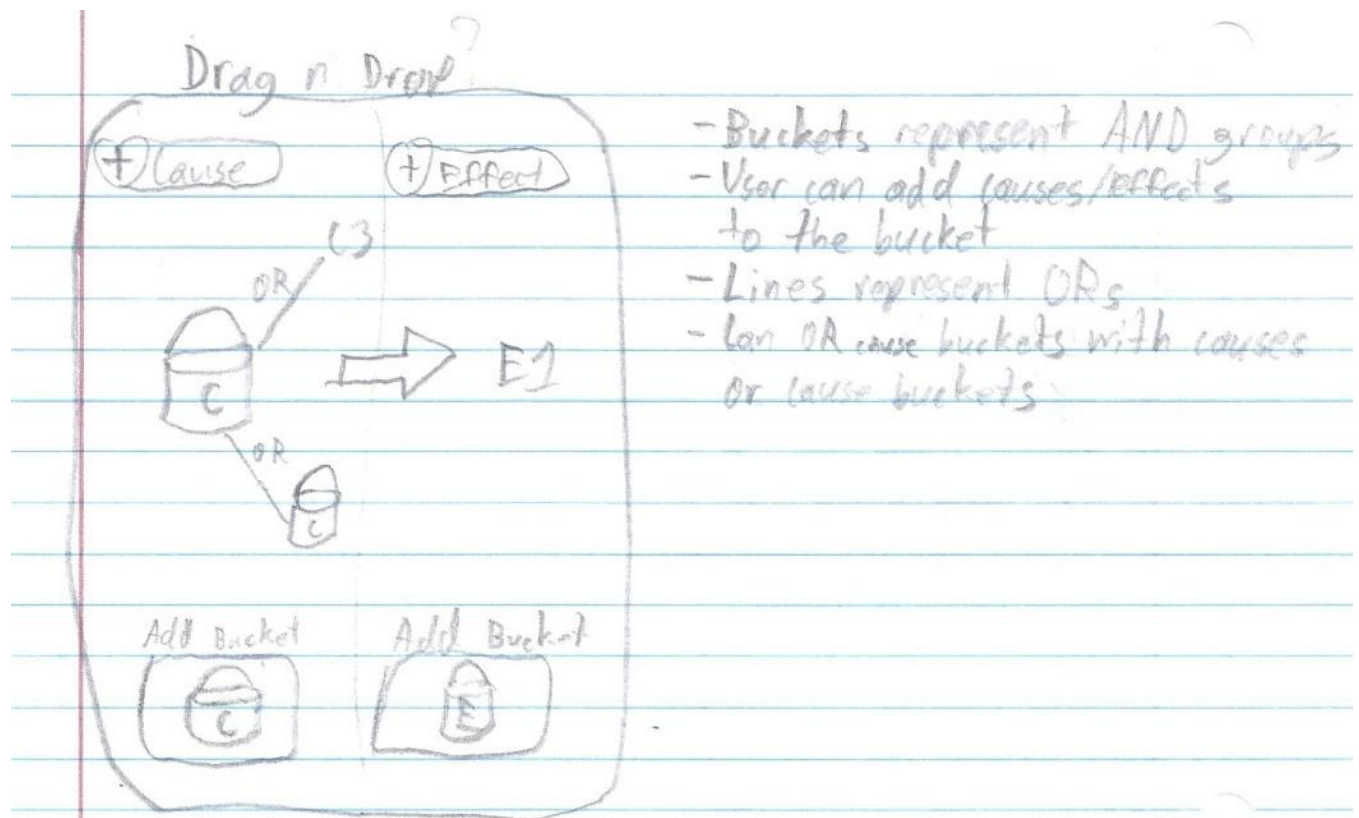 Drag n Drop?
+ Cause
+ Effect
C3
OR
C
E1
OR
C
Add Bucket
Add Bucket
C
E
- Buckets represent AND groups
- User can add causes/effects
to the bucket
- Lines represent ORs
- Can OR cause buckets with causes
or cause buckets